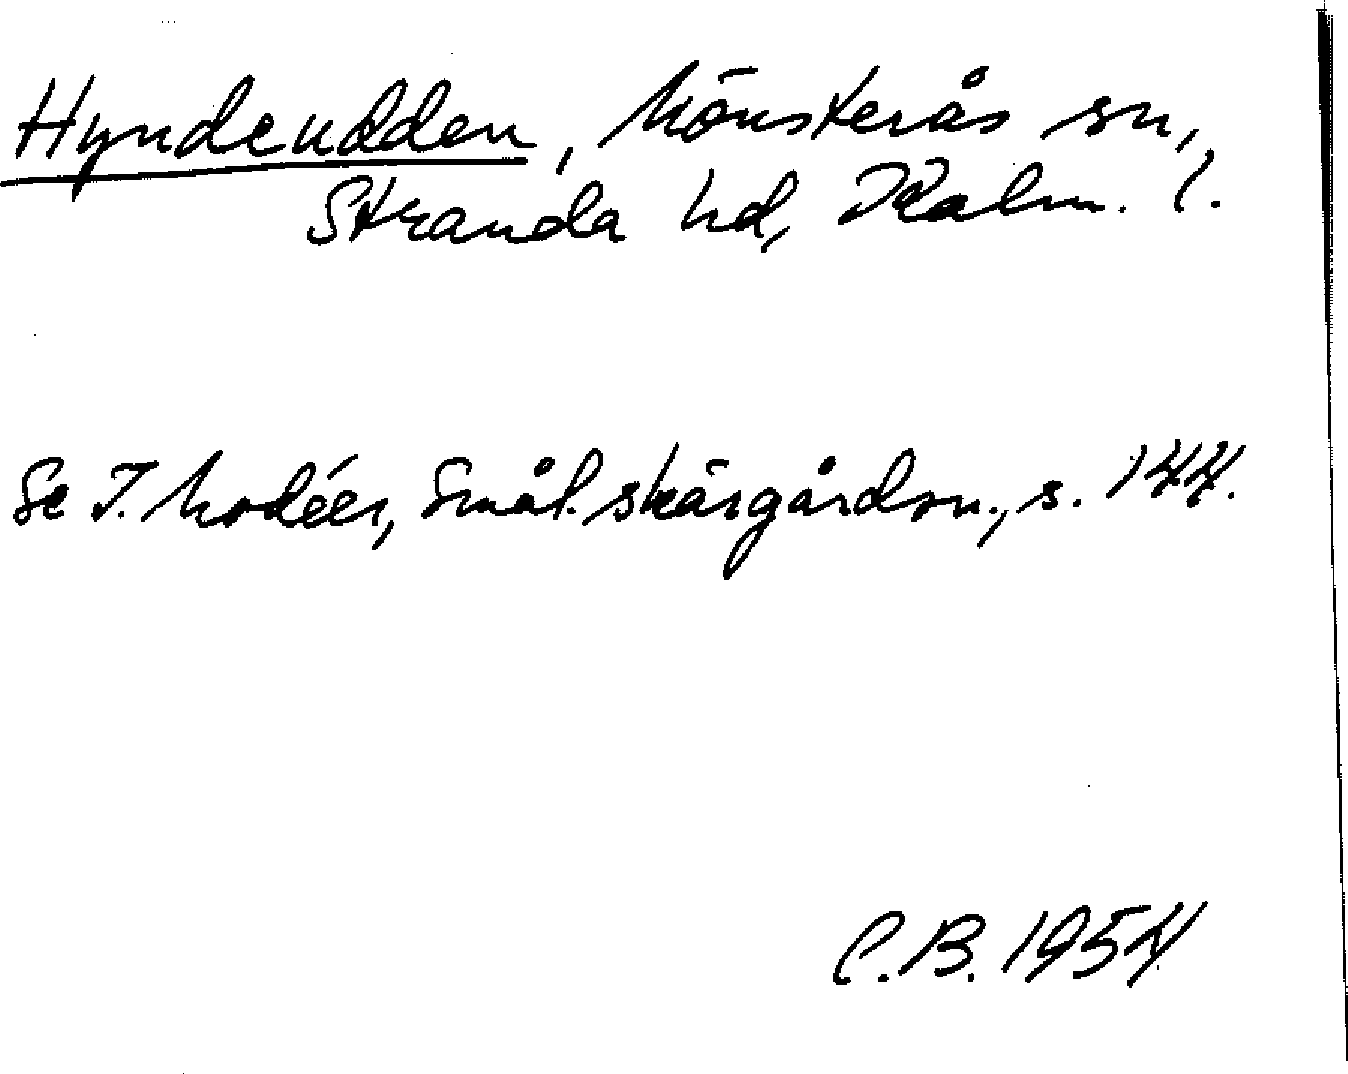 Hyndeudden, Mönsterås sn,
Stranda hd, Kalm. l.
Se I. Modéer, Smål. skärgårdsn., s. 144.
C.B. 1954